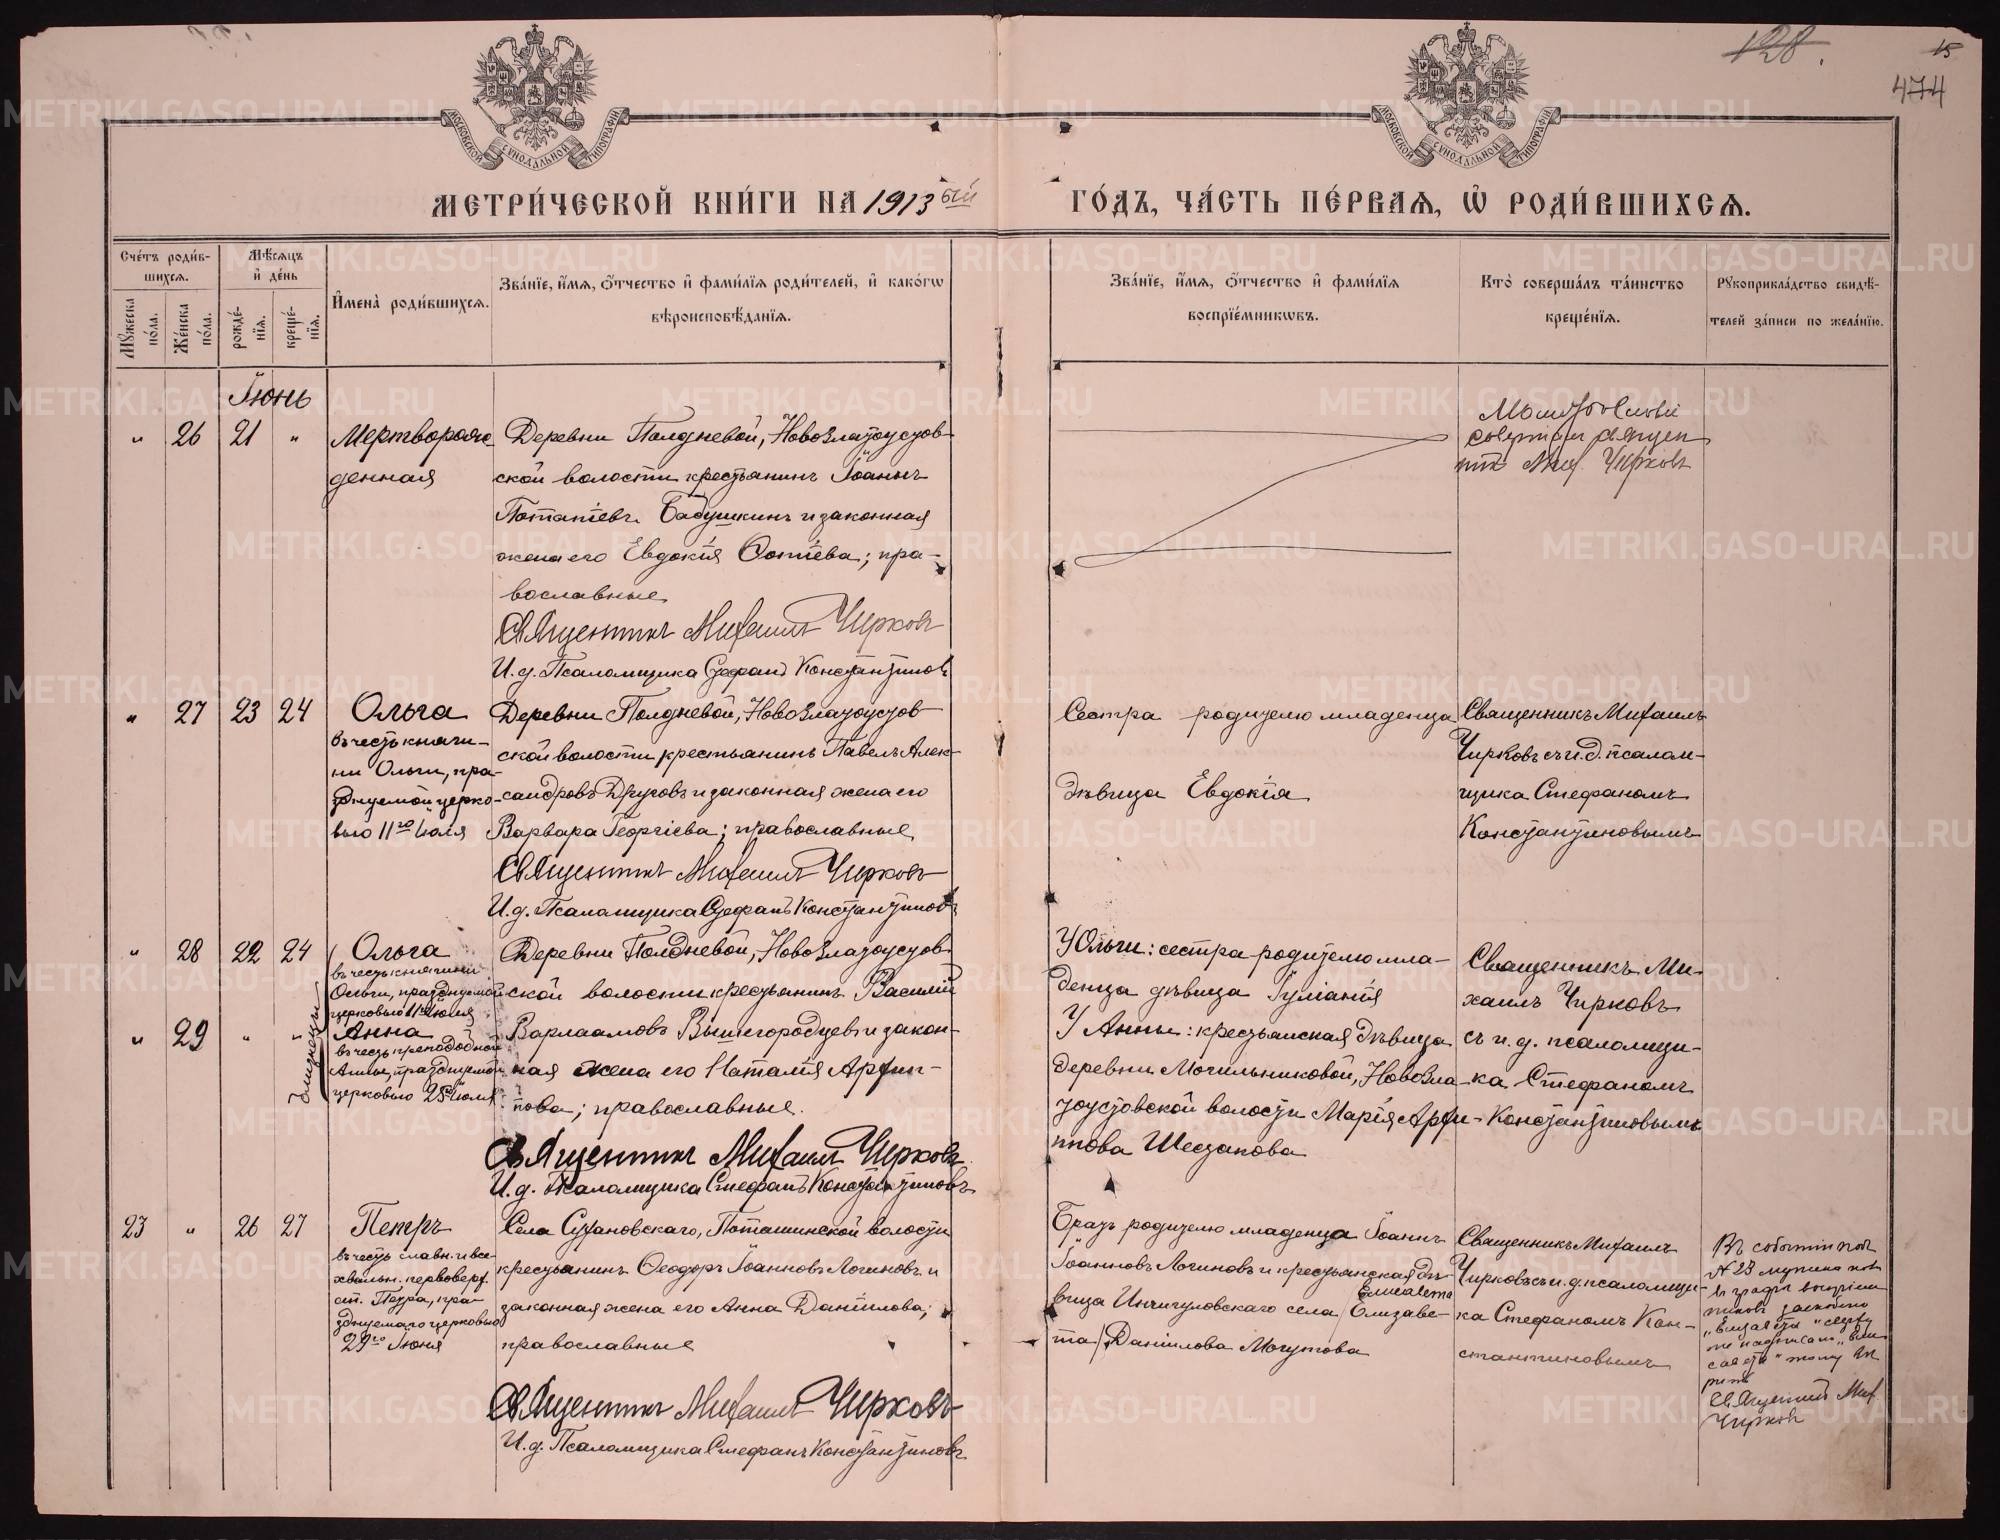 128.
15
474
МОСКОВСКОЙ СУНОДАЛЬНОЙ ТИПОГРАФІИ
МОСКОВСКОЙ СУНОДАЛЬНОЙ ТИПОГРАФІИ
МЕТРИ́ЧЕСКОЙ КНИ́ГИ НА 1913 ый ГО́ДЪ, ЧА́СТЬ ПЕ́РВАЯ, Ѡ҆ РОДИ́ВШИХСЯ.
Сче́тъ роди́в-
шихся.
Мꙋжеска по́ла.
Же́нска по́ла.
Мѣ́сяцъ и҆ де́нь
рожде́-
нїя.
креще́-
нїя.
И҆мена̀ роди́вшихся.
Зва́нїе, и҆́мя, ѻ҆́тчество и҆ фами́лїя роди́телей, и҆ како́гѡ
вѣроисповѣ́данїя.
Зва́нїе, и҆́мя, ѻ҆́тчество и҆ фами́лїя
воспрїе́мникѡвъ.
Кто̀ соверша́лъ та́инство
креще́нїя.
Рꙋкоприкла́дство свидѣ́-
телей за́писи по жела́нїю.
Іюнь
" 26 21 " Мертворож-
денная
Деревни Полдневой, Новозлатоустов-
ской волости крестьянинъ Іоаннъ
Потапіевъ Бабушкинъ и законная
жена его Евдокія Фотіева; пра-
вославные
Священникъ Михаилъ Чирковъ
И. д. Псаломщика Стефанъ Константиновъ
Молитвословіе
совершалъ священ
никъ Мих. Чирковъ
" 27 23 24 Ольга
въ честь княги-
ни Ольги, пра-
зднуемой церко-
вью 11го Іюля
Деревни Полдневой, Новозлатоустов-
ской волости крестьянинъ Павелъ Алек-
сандровъ Друговъ и законная жена его
Варвара Георгіева; православные
Священникъ Михаилъ Чирковъ
И. д. Псаломщика Стефанъ Константиновъ
Сестра родителю младенца
дѣвица Евдокія
Священникъ Михаилъ
Чирковъ съ и. д. псалом-
щика Стефаномъ
Константиновымъ
" 28 22 24 Ольга
въ честь княгини
Ольги, празднуемой
церковью 11го Іюля
" 29 " " Анна
въ честь преподобной
Анны, празднуемой
церковью 25го Іюля
Близнецы
Деревни Полдневой, Новозлатоустов-
ской волости крестьянинъ Василій
Варлаамовъ Вышегородцевъ и закон-
ная жена его Наталія Архип-
пова; православные.
Священникъ Михаилъ Чирковъ
И. д. Псаломщика Стефанъ Константиновъ
У Ольги: сестра родителю мла-
денца дѣвица Іуліанія
У Анны: крестьянская дѣвица
деревни Могильниковой, Новозла-
тоустовской волости Марія Архи-
ппова Шестакова
Священникъ Ми-
хаилъ Чирковъ
съ и. д. псаломщи-
ка Стефаномъ
Константиновымъ
23 " 26 27 Петръ
въ честь славн. и все-
хвальн. первоверх.
ап. Петра, пра-
зднуемаго церковью
29го Іюня
Села Сухановскаго, Поташинской волости
крестьянинъ Ѳеодоръ Іоанновъ Логиновъ и
законная жена его Анна Даніилова;
православные
Священникъ Михаилъ Чирковъ
И. д. Псаломщика Стефанъ Константиновъ
Братъ родителю младенца Іоаннъ
Іоанновъ Логиновъ и крестьянская дѣ-
Елисавета
вица Ичигуловскаго села /Елизаве-
та/ Даніилова Могутова
Священникъ Михаилъ
Чирковъ съ и. д. псаломщи-
ка Стефаномъ Кон-
стантиновымъ
Въ событіи подъ
№ 23 мужска пол
въ графѣ воспріем
никовъ заскоблено
"Елизавета" сверху
же надписано "Ели
савета" тому вѣ
рить
Священникъ Мих.
Чирковъ